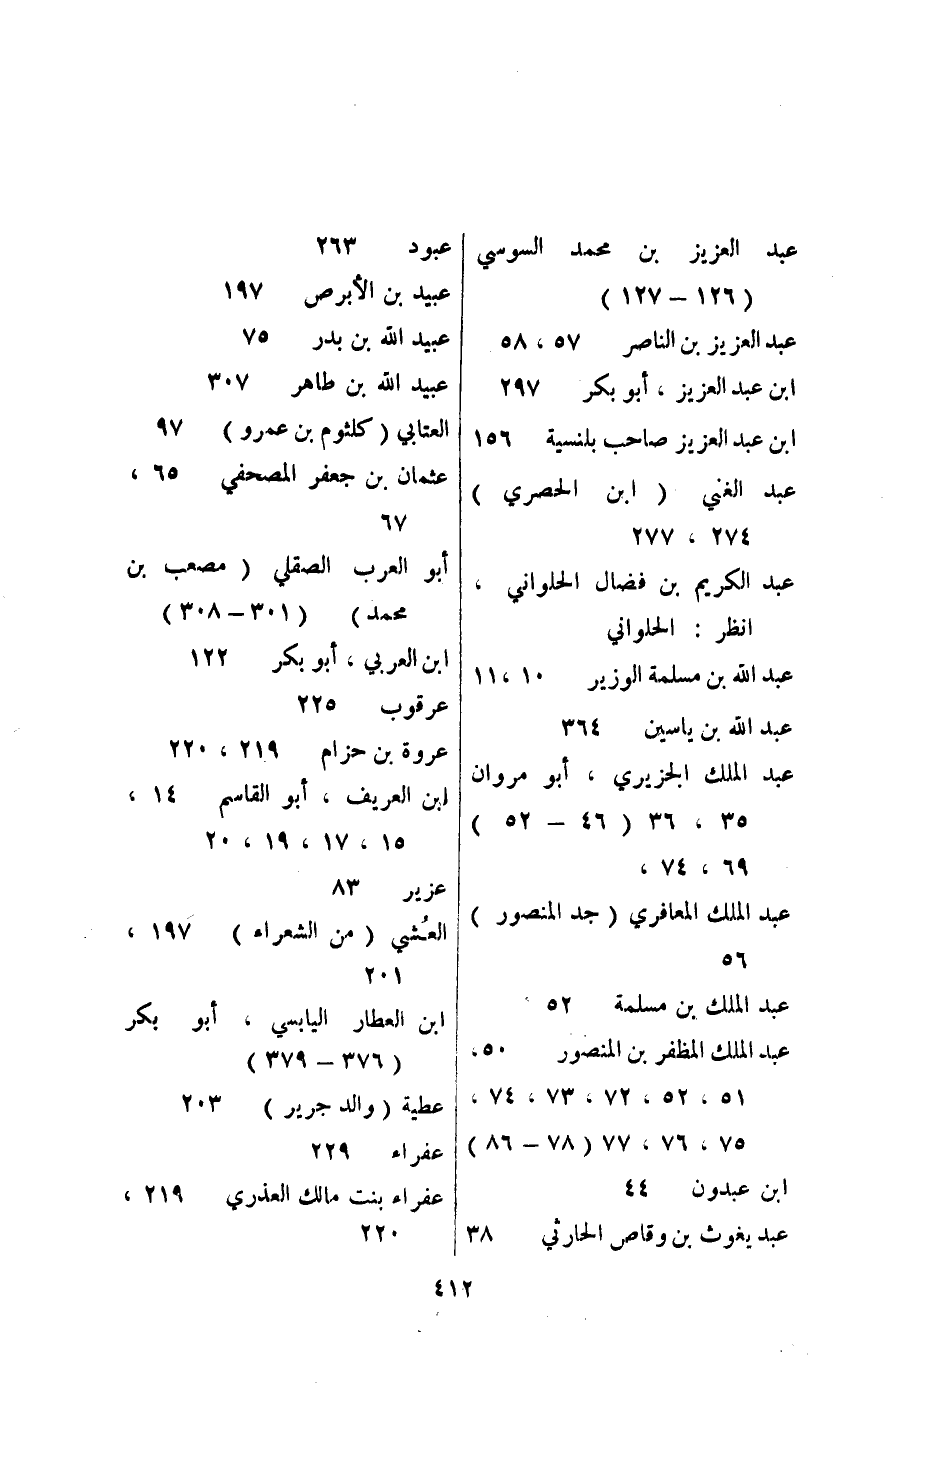 عبد العزيز بن محمد السوسي
( ١٢٦ – ١٢٧ )
عبد العزيز بن الناصر ٥٧ ، ٥٨
ابن عبد العزيز ، أبو بكر ٢٩٧
ابن عبد العزيز صاحب بلنسية ١٥٦
عبد الغني ( ابن الحصري )
٢٧٤ ، ٢٧٧
عبد الكريم بن فضال الحلواني ،
انظر : الحلواني
عبد الله بن مسلمة الوزير ١٠ ، ١١
عبد الله بن ياسين ٣٦٤
عبد الملك الجزيري ، أبو مروان
٣٥ ، ٣٦ ( ٤٦ – ٥٢ )
٦٩ ، ٧٤ ،
عبد الملك المعافري ( جد المنصور )
٥٦
عبد الملك بن مسلمة ٥٢
عبد الملك المظفر بن المنصور ٥٠،
٥١ ، ٥٢ ، ٧٢ ، ٧٣ ، ٧٤ ،
٧٥ ، ٧٦ ، ٧٧ ( ٧٨ – ٨٦ )
ابن عبدون ٤٤
عبد يغوث بن وقاص الحارثي ٣٨
عبود ٢٦٣
عبيد بن الأبرص ١٩٧
عبيد الله بن بدر ٧٥
عبيد الله بن طاهر ٣٠٧
العتابي ( كلثوم بن عمرو ) ٩٧
عثمان بن جعفر المصحفي ٦٥ ،
٦٧
أبو العرب الصقلي ( مصعب بن
محمد ) ( ٣٠١ – ٣٠٨ )
ابن العربي ، أبو بكر ١٢٢
عرقوب ٢٢٥
عروة بن حزام ٢١٩ ، ٢٢٠
ابن العريف ، أبو القاسم ١٤ ،
١٥ ، ١٧ ، ١٩ ، ٢٠
عزير ٨٣
العُشي ( من الشعراء ) ١٩٧ ،
٢٠١
ابن العطار اليابسي ، أبو بكر
( ٣٧٦ – ٣٧٩ )
عطية ( والد جرير ) ٢٠٣
عفراء ٢٢٩
عفراء بنت مالك العذري ٢١٩ ،
٢٢٠
٤١٢